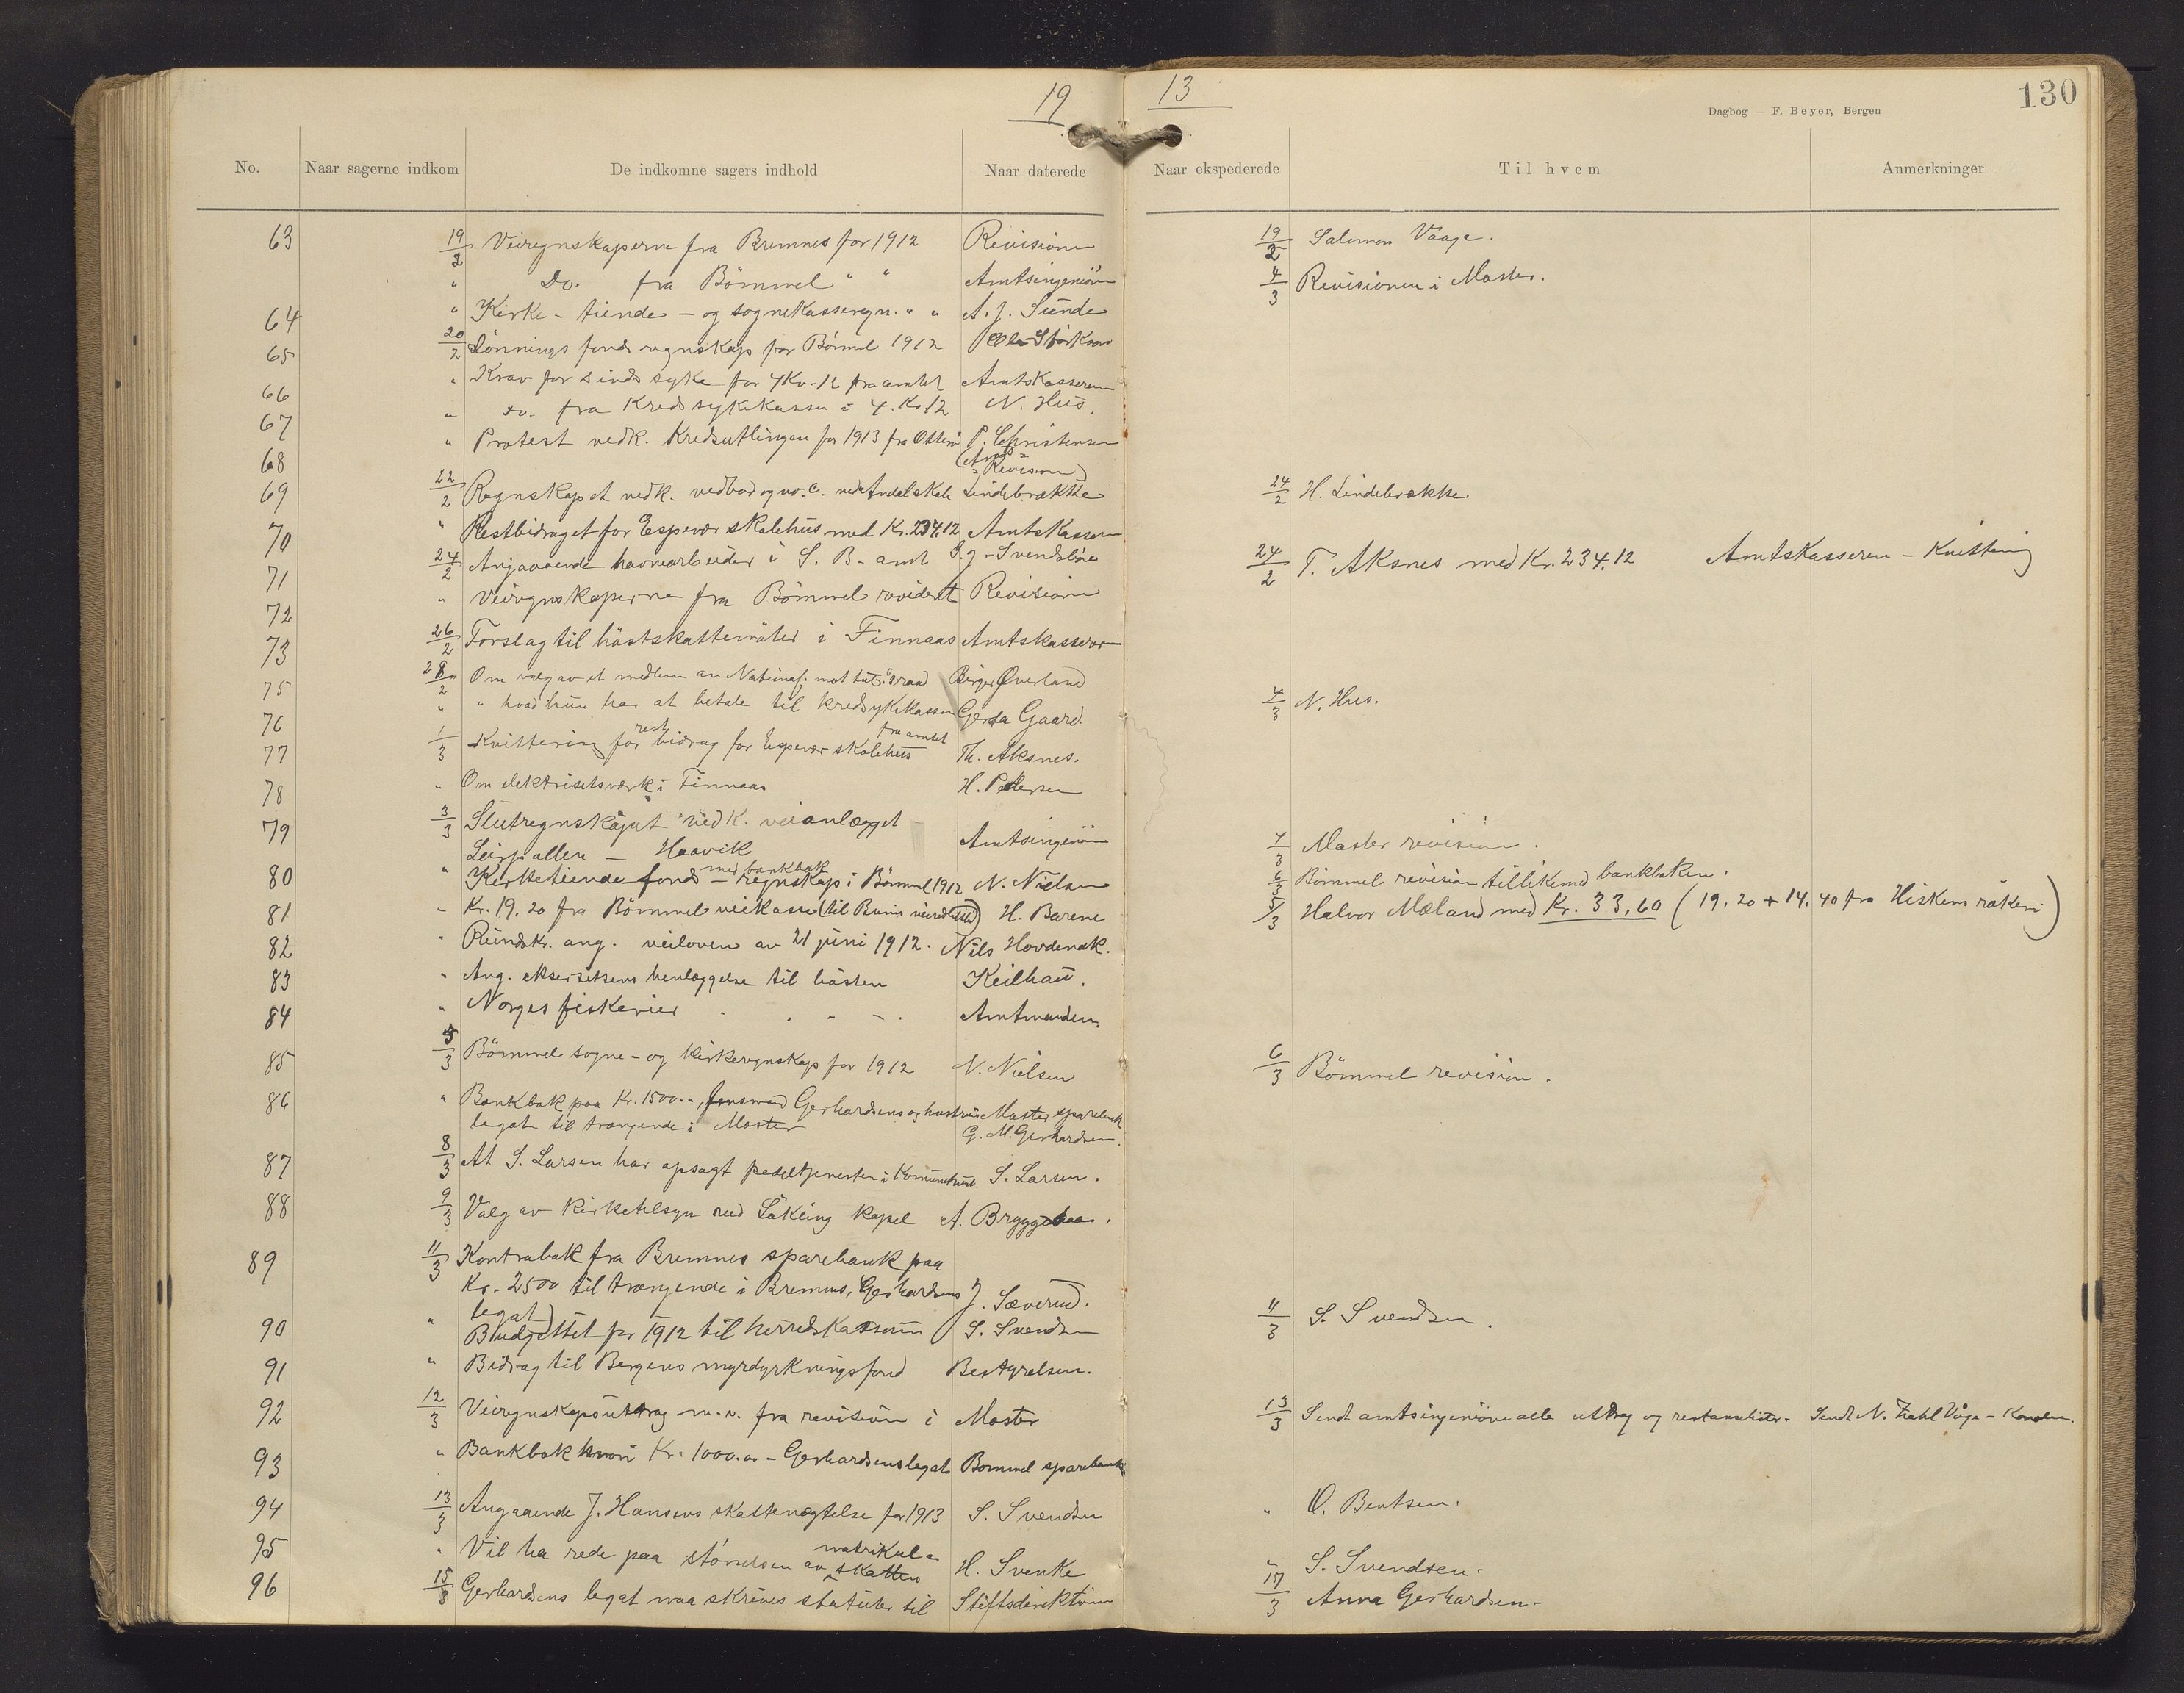 19 13
130
Dagbog — F. Beyer, Bergen
No. Naar sagerne indkom De indkomne sagers indhold Naar daterede Naar ekspederede Til hvem Anmerkninger
63 19/2 Veiregnskaperne fra Bremnes for 1912 Revisionen 19/2 Salomon Vaage.
" Do. fra Bömmel " " Amtsingeniören 4/3 Revisionen i Moster.
64 " Kirke-tiende- og sognekasseregn. " " A. J. Sunde
65 20/2 Lönnings fonds regnskap for Bömmel 1912 Ole Storksen
66 " Krav for sindssyke for 4 Kv. 12 fra amtet Amtskasseren
67 " do. fra Kredssykekassen i 4. Kv 12 N. Hus.
68 " Protest vedk. Kredsutlingen for 1913 fra P. Christensen
(Revision)
69 22/2 Regnskapet vedk. vedbod og vo.c. ved Andal skole Lindebrække 24/2 H. Lindebrække.
70 " Restbidraget for Espevær skolehus med Kr. 234,12 Amtskasseren
71 24/2 Angaaende havnearbeider i S. B. amt 24/2 T. Aksnes med Kr. 234.12 Amtskasseren - Kvittering
72 " Veiregnskaperne fra Bömmel revidert Revisionen
73 26/2 Forslag til hästskatteruter i Finnaas Amtskasseren
75 28/2 Om valg av et medlem av Nationalf. mot tub.s raad Birger Øverland
76 " " hvad hun har at betale til kredsykekassen Gerta Gaard. 4/3 N. Hus.
77 1/3 Kvittering for rest bidrag for Espevær skolehus fra amtet Th. Aksnes.
78 " Om elektrisitsværk i Finnaas H. Pettersen
79 3/3 Slutregnskapet vedk. veianlægget
Leirpollen - Haavik Amtsingeniören 4/3 Moster revision.
80 " Kirketiende fonds - regnskap med bankbok i Bömmel 1912 N. Nielsen 6/3 Bömmel revision tillikemed bankboken.
81 " Kr. 19.20 fra Bömmel veikasse H. Barene 5/3 Halvor Mæland med Kr. 33,60 (19.20 + 14.40 fra Hiskens rökeri)
82 " Rundskr. ang. veiloven av 21 juni 1912. Nils Hovdenak.
83 " Ang. eksersitsens henlæggelse til hästen Keilhau.
84 " Norges fiskerier Amtmanden.
85 5/3 Bömmel sogne- og kirkeregnskap for 1912 N. Nielsen 6/3 Bömmel revision.
86 " Bankbok paa Kr. 1500.-, Gerhardsens og hustrus Moster sparebank
legat til trængende i Moster G. M. Gerhardsen.
87 8/3 At S. Larsen har opsagt pedeltjenesten i Komunehuset S. Larsen.
88 9/3 Valg av kirketilsyn ved Läkling kapel A. Bryggebaa.
89 11/3 Kontrabok fra Bremnes sparebank paa
Kr. 2500 til trængende i Bremnes, Gerhardsens J. Sæverud.
legat)
90 " Budgettet for 1912 til herredskasseren S. Svendsen 11/3 S. Svendsen.
91 " Bidrag til Bergens myrdyrkningsfond Bestyrelsen.
92 12/3 Veiregnskapsutdrag m.v. fra revisionen i Moster 13/3 Sendt amtsingeniören alle utdrag og restanselister. Sendt N. Våge -
93 " Bankbok hvori Kr. 1000.00 - Gerhardsens legat Bommel sparebank
94 13/3 Angaaende J. Hansens skattenægtelse for 1913 S. Svendsen " O. Bentsen.
95 " Vil ha rede paa störrelsen av matrikul-skatten H. Svenke " S. Svendsen.
96 15/3 Gerhardsens legat maa skrives statuter til Stiftsdirektionen 17/3 Anna Gerhardsen-